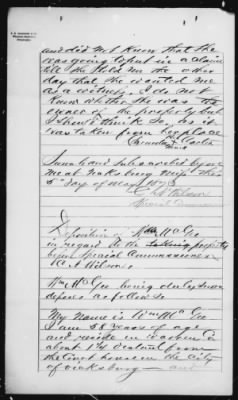 and did not know that she
was going to put in a claim
till she told me the other
day that she wanted me
as a witness. I do not
know whether she was the
owner of the property but
I should think so, as it
was taken from her place
Carter
Sworn and subscribed by me
me at Vicksburg Miss this
5th day of May 1873
Wilson
Special Commissioner
Deposition of Wm McGee
in regard to the taking property
before Special Commissioner
Wilson
Wm McGee being duly sworn
deposes as follows
My name is Wm McGee
I am 58 years of age
and reside in
about 1/2 distant from
the Court house in the City
of Vicksburg and